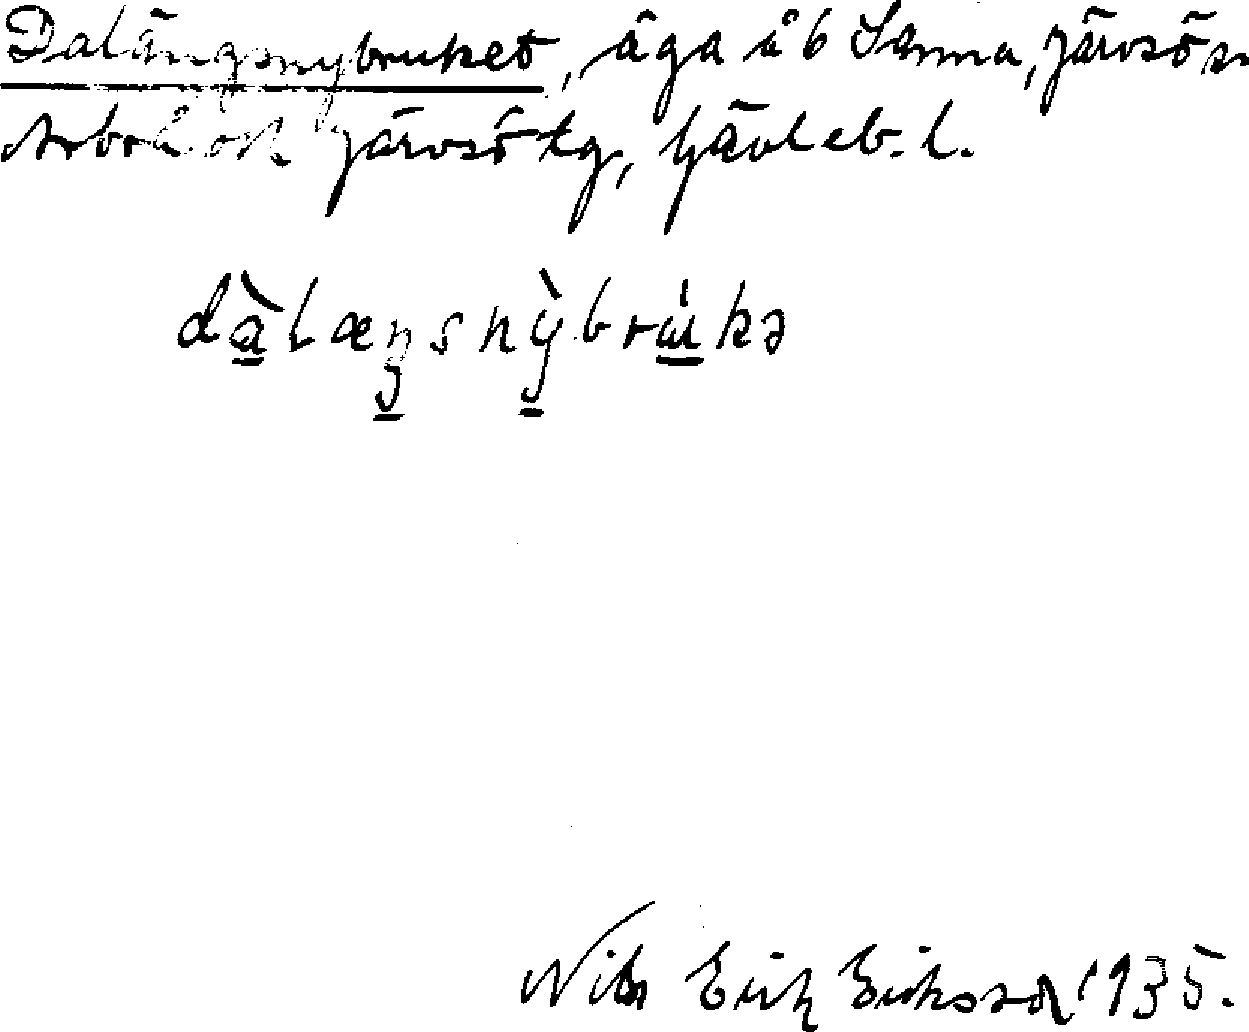 Dalängsnybruket, äga å 6 Sanna, Järvsö sn
Arbrå och Järvsö tg, Gävleb. l.
dàlæŋsnỳbrúkə
Nils Erik Eriksson 1935.